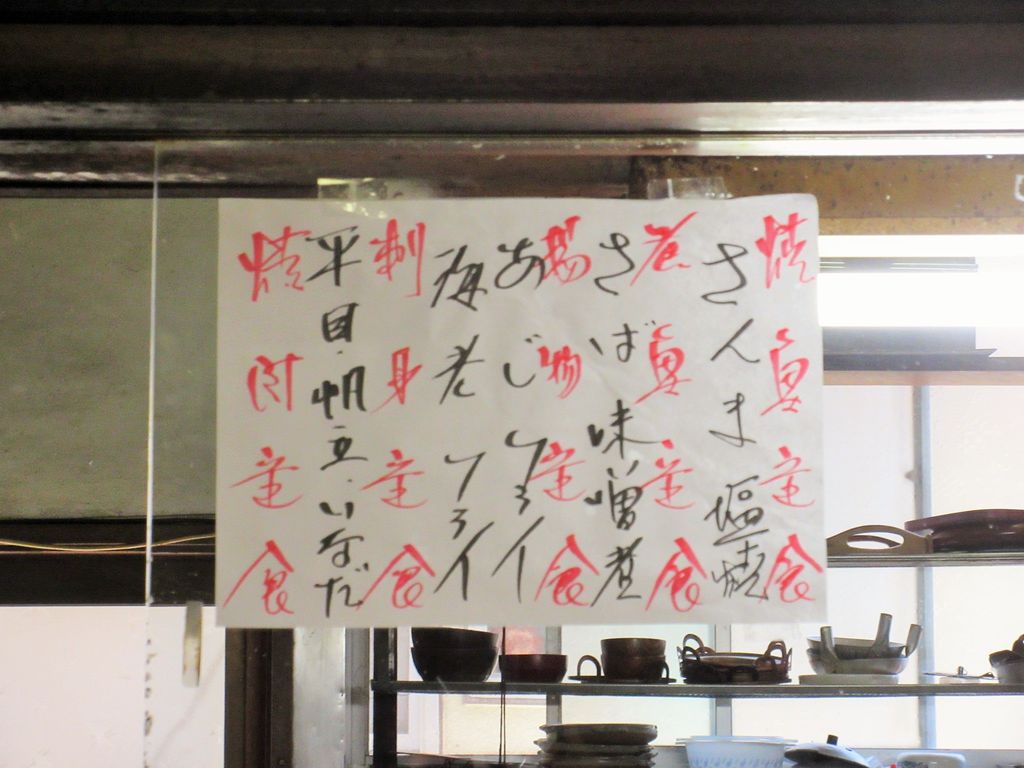 焼魚定食
さんま塩焼
煮魚定食
さば味噌煮
揚物定食
あじフライ
海老フライ
刺身定食
平目・帆立・いなだ
焼肉定食